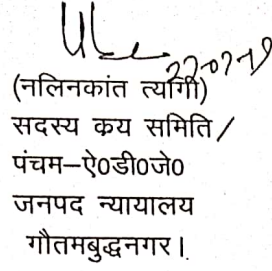 22-07-19
(नलिनकांत त्यागी)
सदस्य क्रय समिति /
पंचम–ऐ0डी0जे0
जनपद न्यायालय
गौतमबुद्धनगर।